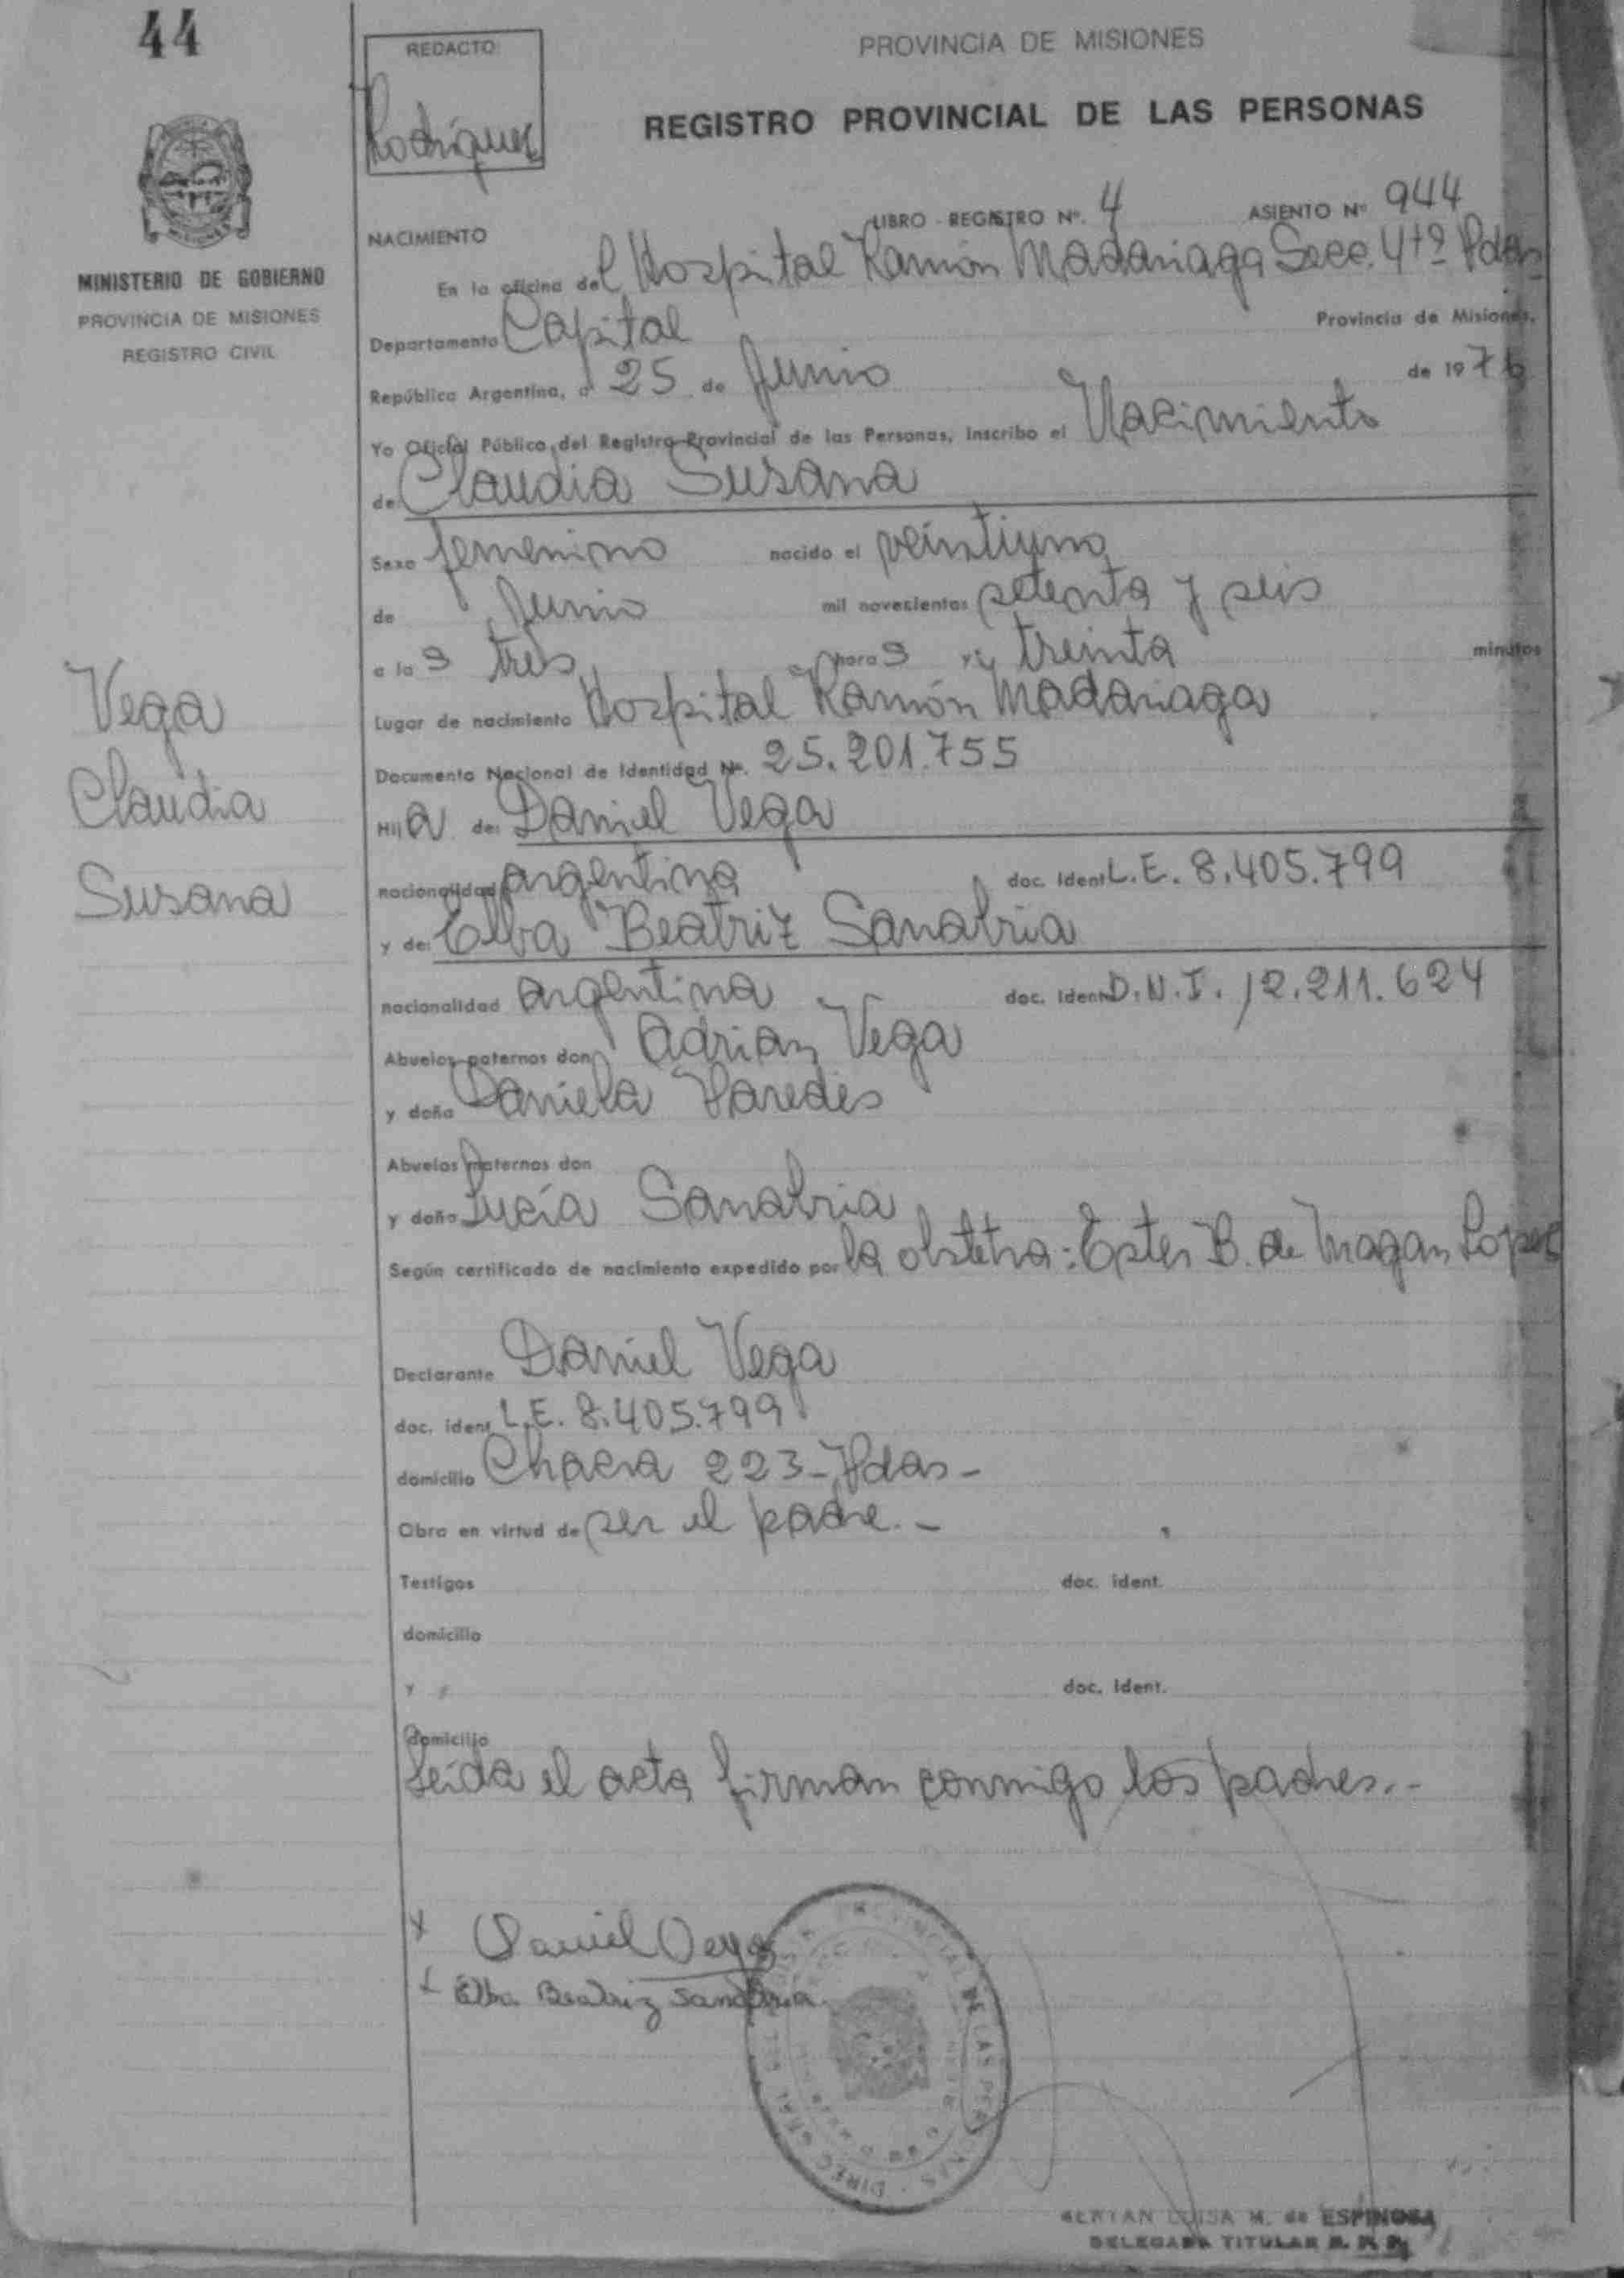 44
REDACTO
Rodríguez
PROVINCIA DE MISIONES
REGISTRO PROVINCIAL DE LAS PERSONAS
MISIONES
MINISTERIO DE GOBIERNO
PROVINCIA DE MISIONES
REGISTRO CIVIL
NACIMIENTO
LIBRO - REGISTRO Nº. 4 ASIENTO Nº 944
En la oficina del Hospital Ramón Madariaga Secc. 4tª Pdas
Departamento Capital Provincia de Misiones,
República Argentina, a 25 de Junio de 1976
Yo Oficial Público del Registro Provincial de las Personas, inscribo el Nacimiento
de: Claudia Susana
Sexo femenino nacido el veintiuno
de Junio mil novecientos setenta y seis
a las tres horas y treinta minutos
Lugar de nacimiento Hospital Ramón Madariaga
Documento Nacional de Identidad Nº. 25.201.755
Hija de: Daniel Vega
nacionalidad argentina doc. ident L.E. 8.405.799
y de: Elba Beatriz Sanabria
nacionalidad argentina doc. ident D.N.I. 12.211.624
Abuelos paternos don Adrian Vega
y doña Daniela Paredes
Abuelos maternos don
y doña Lucía Sanabria
Según certificado de nacimiento expedido por la obstetra: Ester B. de Magan Lopez
Vega
Claudia
Susana
Declarante Daniel Vega
doc. ident L.E. 8.405.799
domicilio Chacra 223 - Pdas -
Obra en virtud de ser el padre. -
Testigos doc. ident.
domicilio
y doc. ident.
domicilio
Leída el acta firman conmigo los padres. -
x Daniel Vega
x Elba Beatriz Sanabria
LUISA M. de ESPINOSA
DELEGADA TITULAR R. P. P.